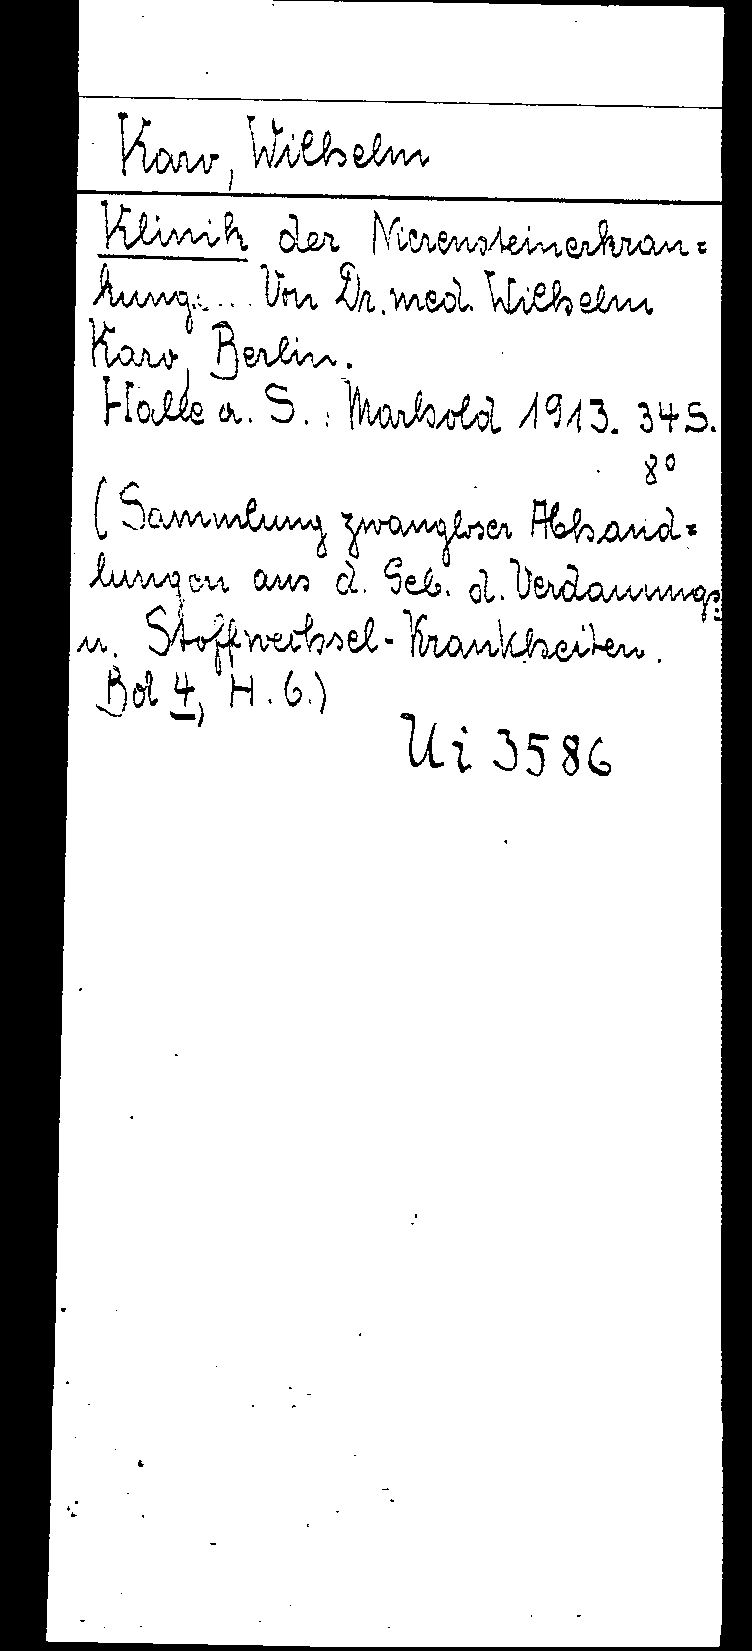 Karo, Wilhelm
Klinik der Nierensteinerkran=
kung... Von Dr. med. Wilhelm
Karo, Berlin.
Halle a. S.: Marhold 1913. 34 S.
8°
(Sammlung zwangloser Abhand=
lungen aus d. Geb. d. Verdauungs=
u. Stoffwechsel-Krankheiten.
Bd 4, H. 6.)
Ui 3586